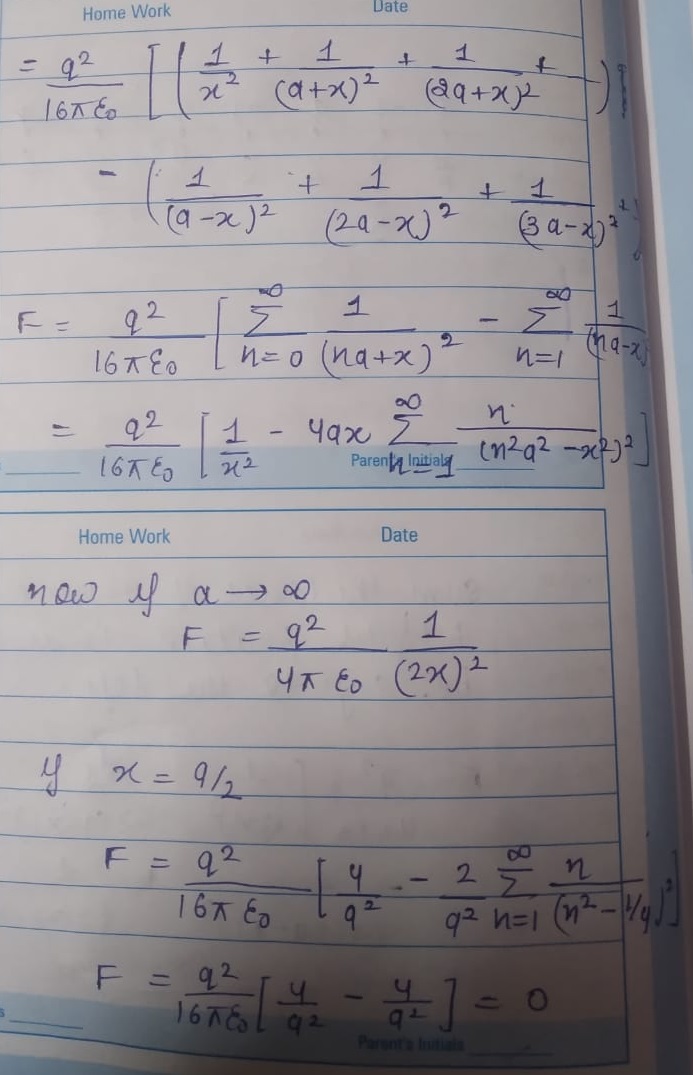 Home Work Date
= q²/16πε₀ [ ( 1/x² + 1/(a+x)² + 1/(2a+x)² + )
- ( 1/(a-x)² + 1/(2a-x)² + 1/(3a-x)²
F = q²/16πε₀ [ ∑_{n=0}^{∞} 1/(na+x)² - ∑_{n=1}^{∞} 1/(na-x)
= q²/16πε₀ [ 1/x² - 4ax ∑_{n=1}^{∞} n/(n²a²-x²)² ]
Parent's Initials
Home Work Date
now if a → ∞
F = q²/4πε₀ 1/(2x)²
if x = a/2
F = q²/16πε₀ [ 4/a² - 2/a² ∑_{n=1}^{∞} n/(n²-1/4)² ]
F = q²/16πε₀ [ 4/a² - 4/a² ] = 0
Parent's Initials